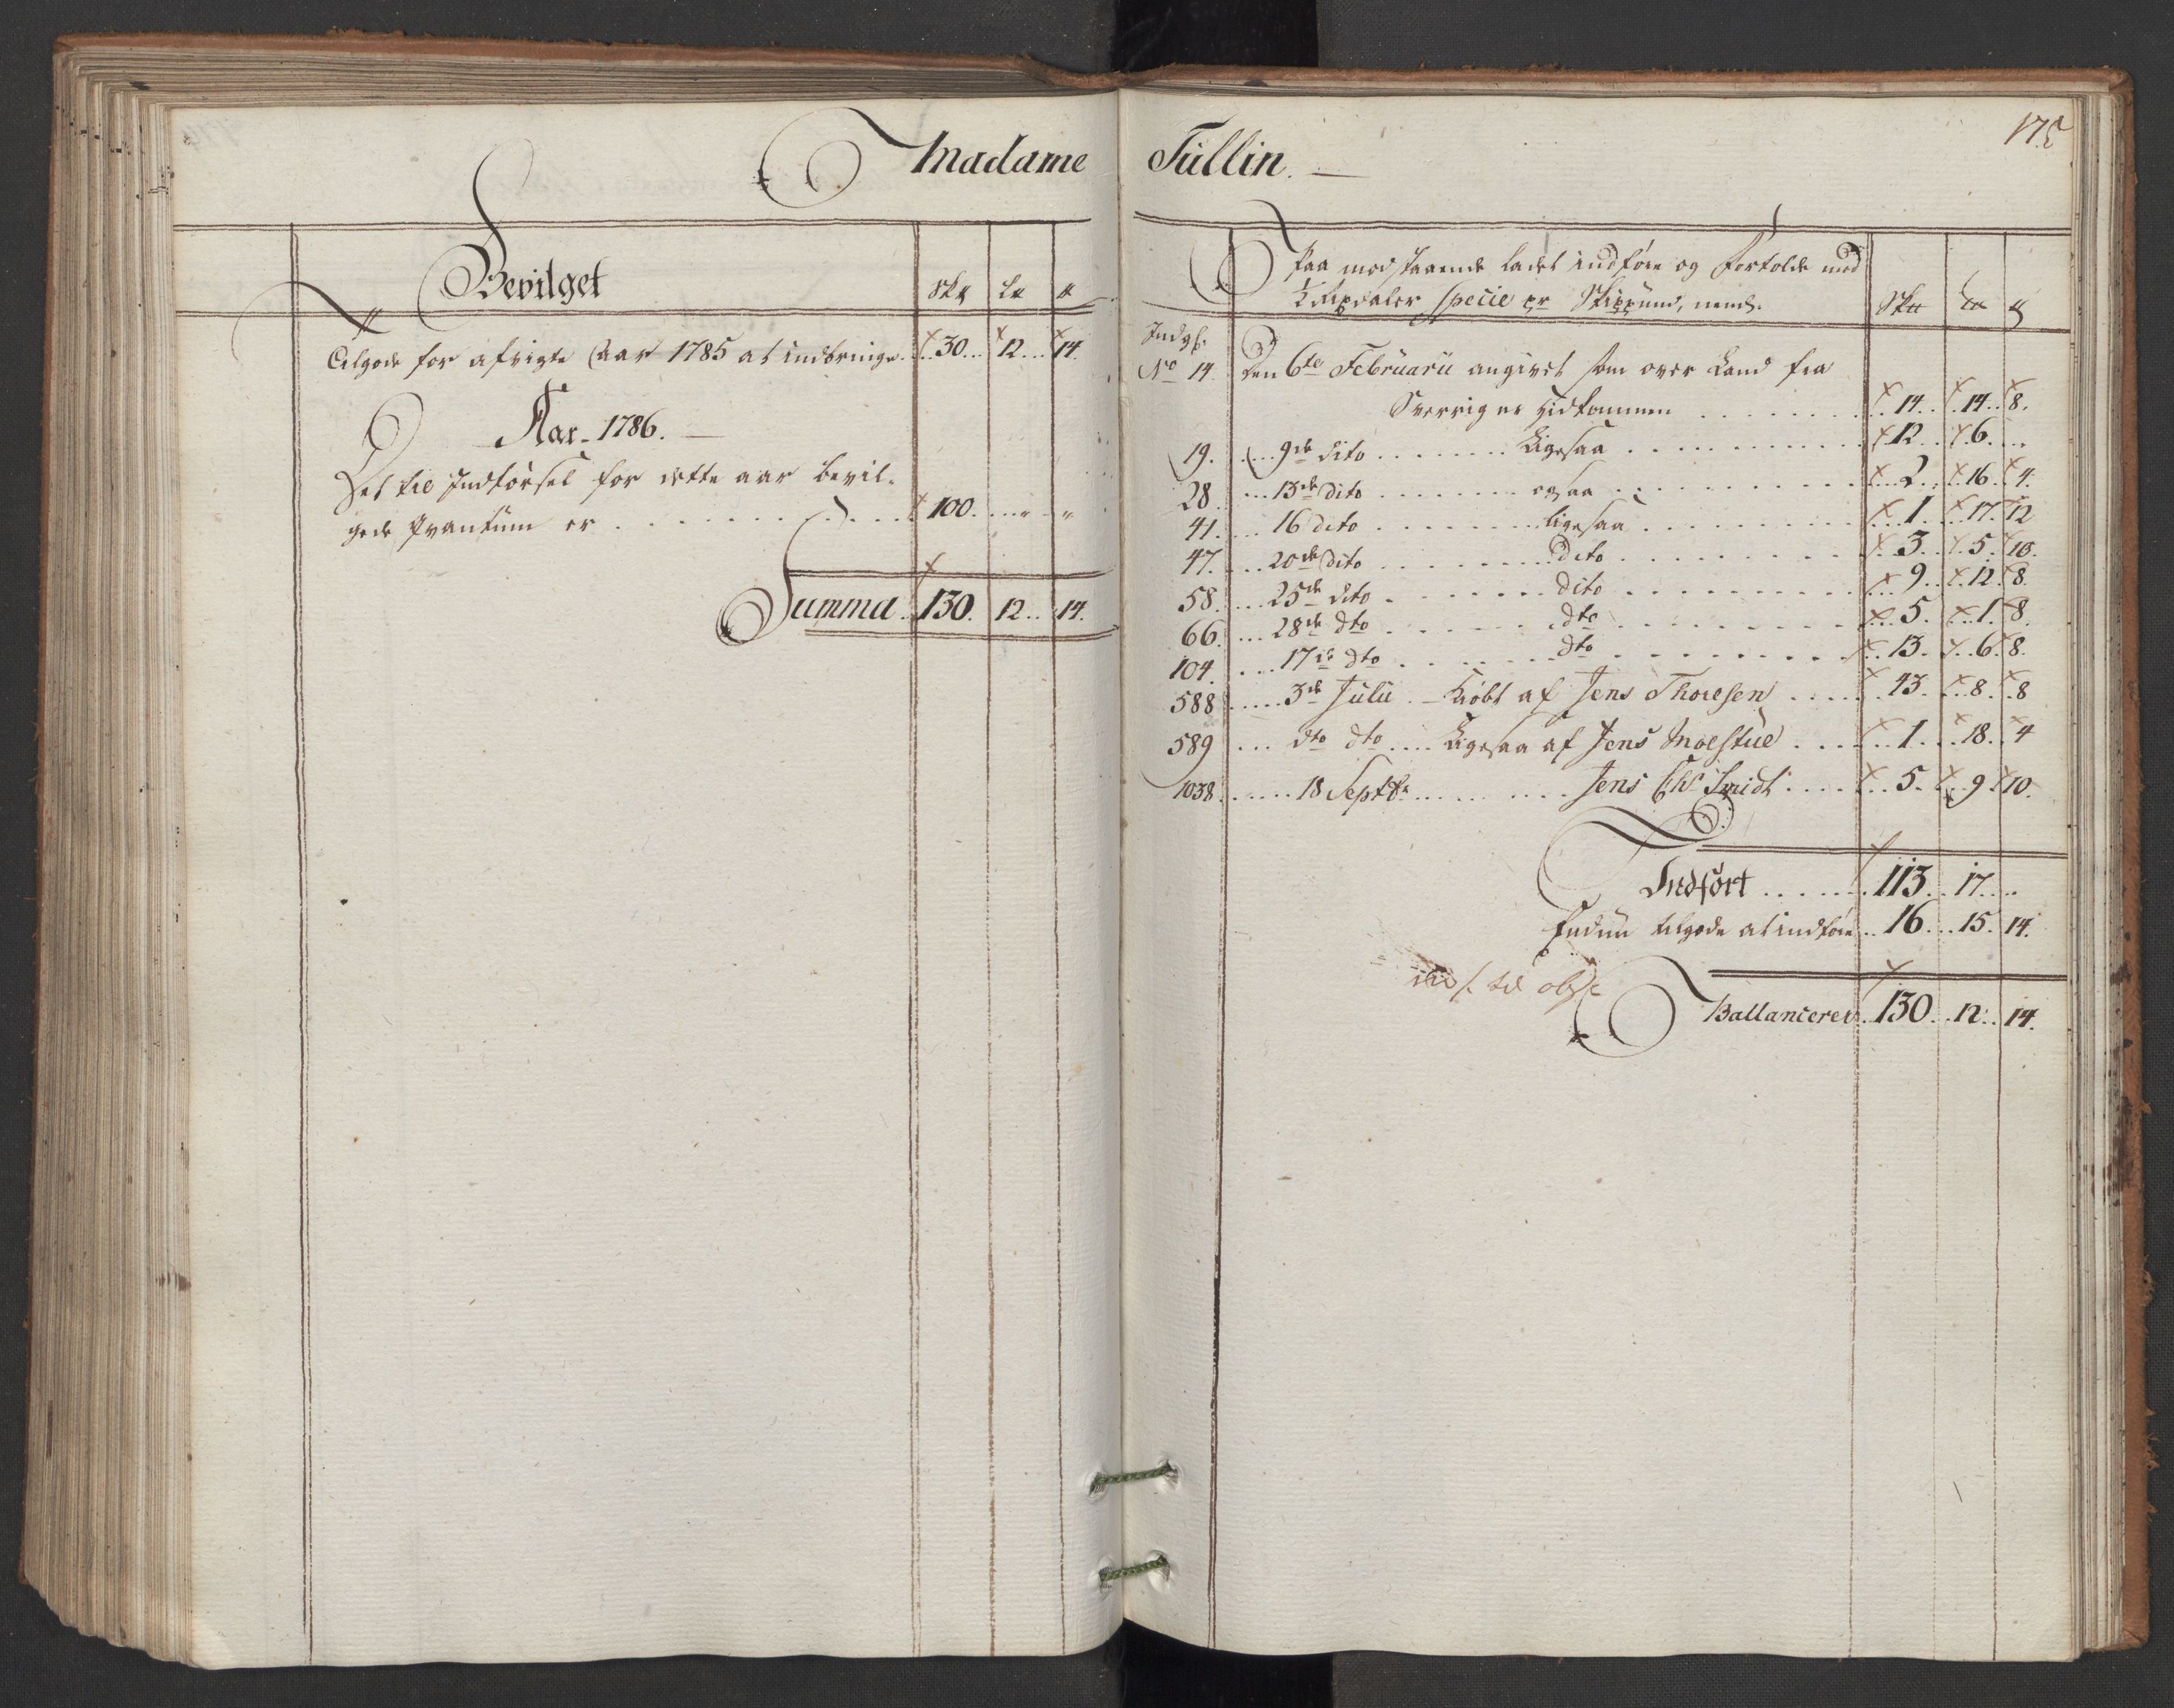 Madame Tullin.
175
Bevilget
Sk℔ L℔ ℔
Tilgode for afvigte Aar 1785 at indbringe 30 12 14
Aar 1786.
Det til Indførsel for dette aar bevil-
gede Qvantum er 100 " "
Summa 130 12 14
Paa modstaaende ladet indføre og fortolde med
½ Rixdaler Specie pr Skippund, nemlig. Sk℔ L℔ ℔
Indg:
No 14 den 6te Februarii angivet som over Land fra
Sverrig er hidkommen 14 14 8
19. 9de dito Ligesaa 12 6
28 13de dito ogsaa 2 16 4
41. 16 dito ligesaa 1 17 12
47. 20de dito dito 3 5 10
58. 25de dito dito 9 12 8
66. 28de dto dto 5 1 8
104. 17de dto dto 13 6 8
588 3de Julii Kiöbt af Jens Thoresen 43 8 8
589 dto dto Ligesaa af Jens Moestue 1 18 4
1038 18 Septbr Jens Chr Smidt 5 9 10
Indført 113 17
Endnu tilgode at indføre 16 15 14
Ballancerer 130 12 14